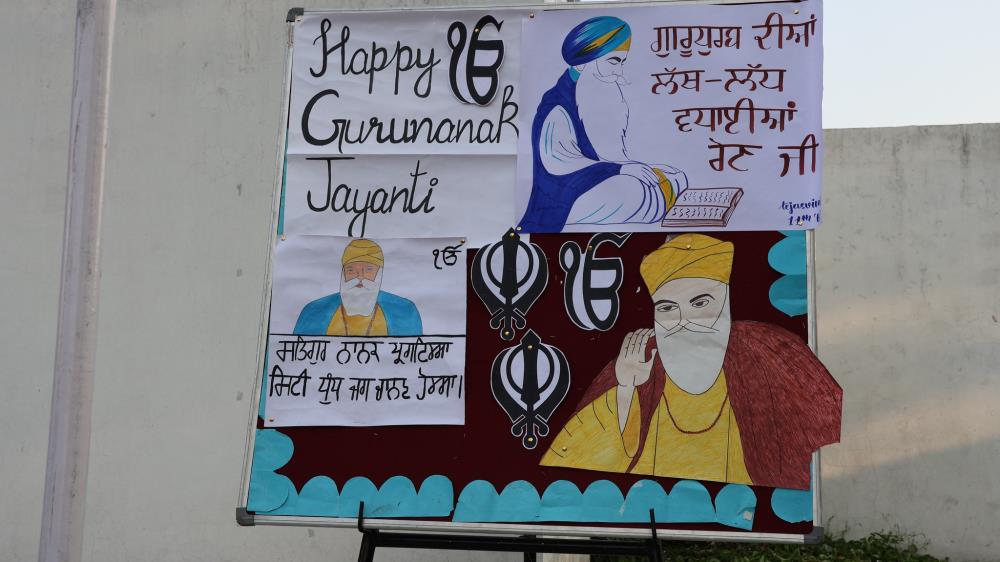 Happy ੴ
Gurunanak
Jayanti
ਗੁਰੂਪੁਰਬ ਦੀਆਂ
ਲੱਖ-ਲੱਖ
ਵਧਾਈਆਂ
ਹੋਣ ਜੀ
ੴ
ਸਤਿਗੁਰ ਨਾਨਕ ਪ੍ਰਗਟਿਆ
ਮਿਟੀ ਧੁੰਧ ਜਗ ਚਾਨਣ ਹੋਆ।
ੴ